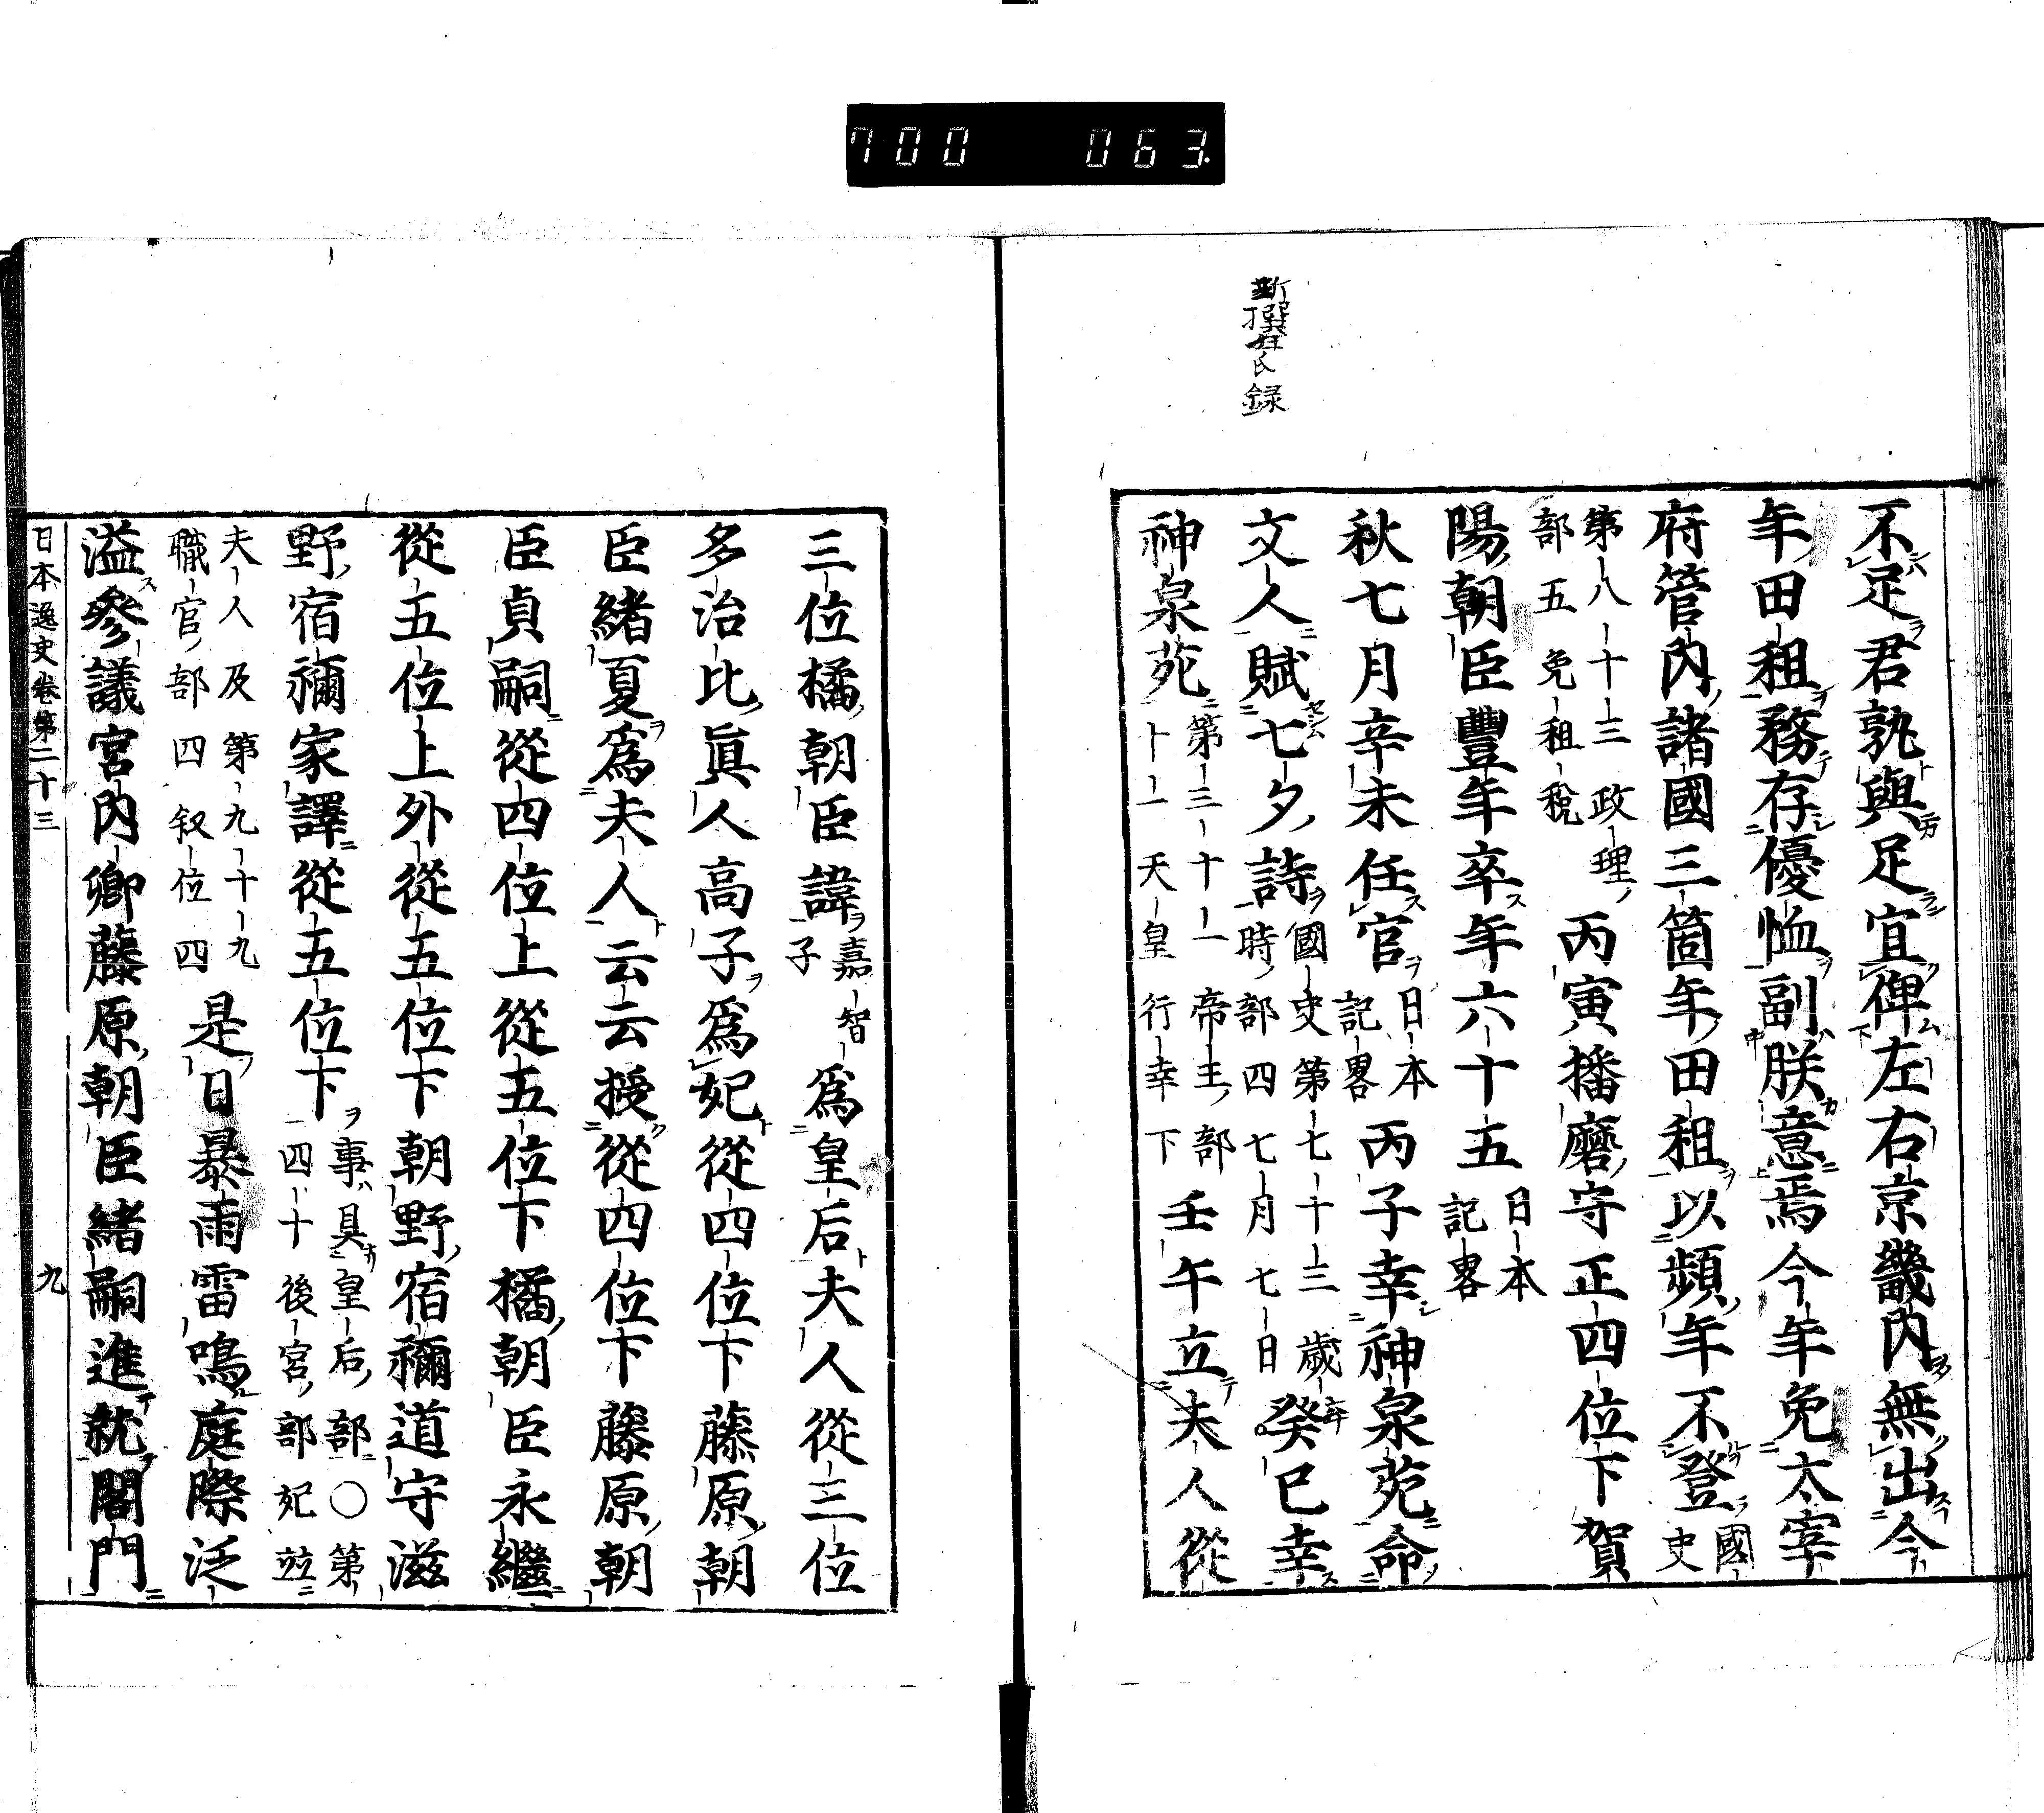 700 063
新撰姓氏録
不足君孰與足宜俾左右京畿內無出今
年田租務存優恤副朕意焉今年免太宰
府管內諸國三箇年田租以頻年不登國史
第八十三政理部五免租税丙寅播磨守正四位下賀
陽朝臣豐年卒年六十五日本記畧
秋七月辛未任官日本記畧丙子幸神泉苑命
文人賦七夕詩國史第七十三歲時部四七月七日癸巳幸
神泉苑第三十一帝王部十一天皇行幸下壬午立夫人從
三位橘朝臣諱嘉智子爲皇后夫人從三位
多治比眞人高子爲妃從四位下藤原朝
臣緒夏爲夫人云云授從四位下藤原朝
臣貞嗣從四位上從五位下橘朝臣永繼
從五位上外從五位下朝野宿禰道守滋
野宿禰家譯從五位下事具皇后部○第四十後宮部妃竝
夫人及第九十九職官部四叙位四是日暴雨雷鳴庭際泛
溢參議宮內卿藤原朝臣緒嗣進就閤門
日本逸史卷第二十三 九